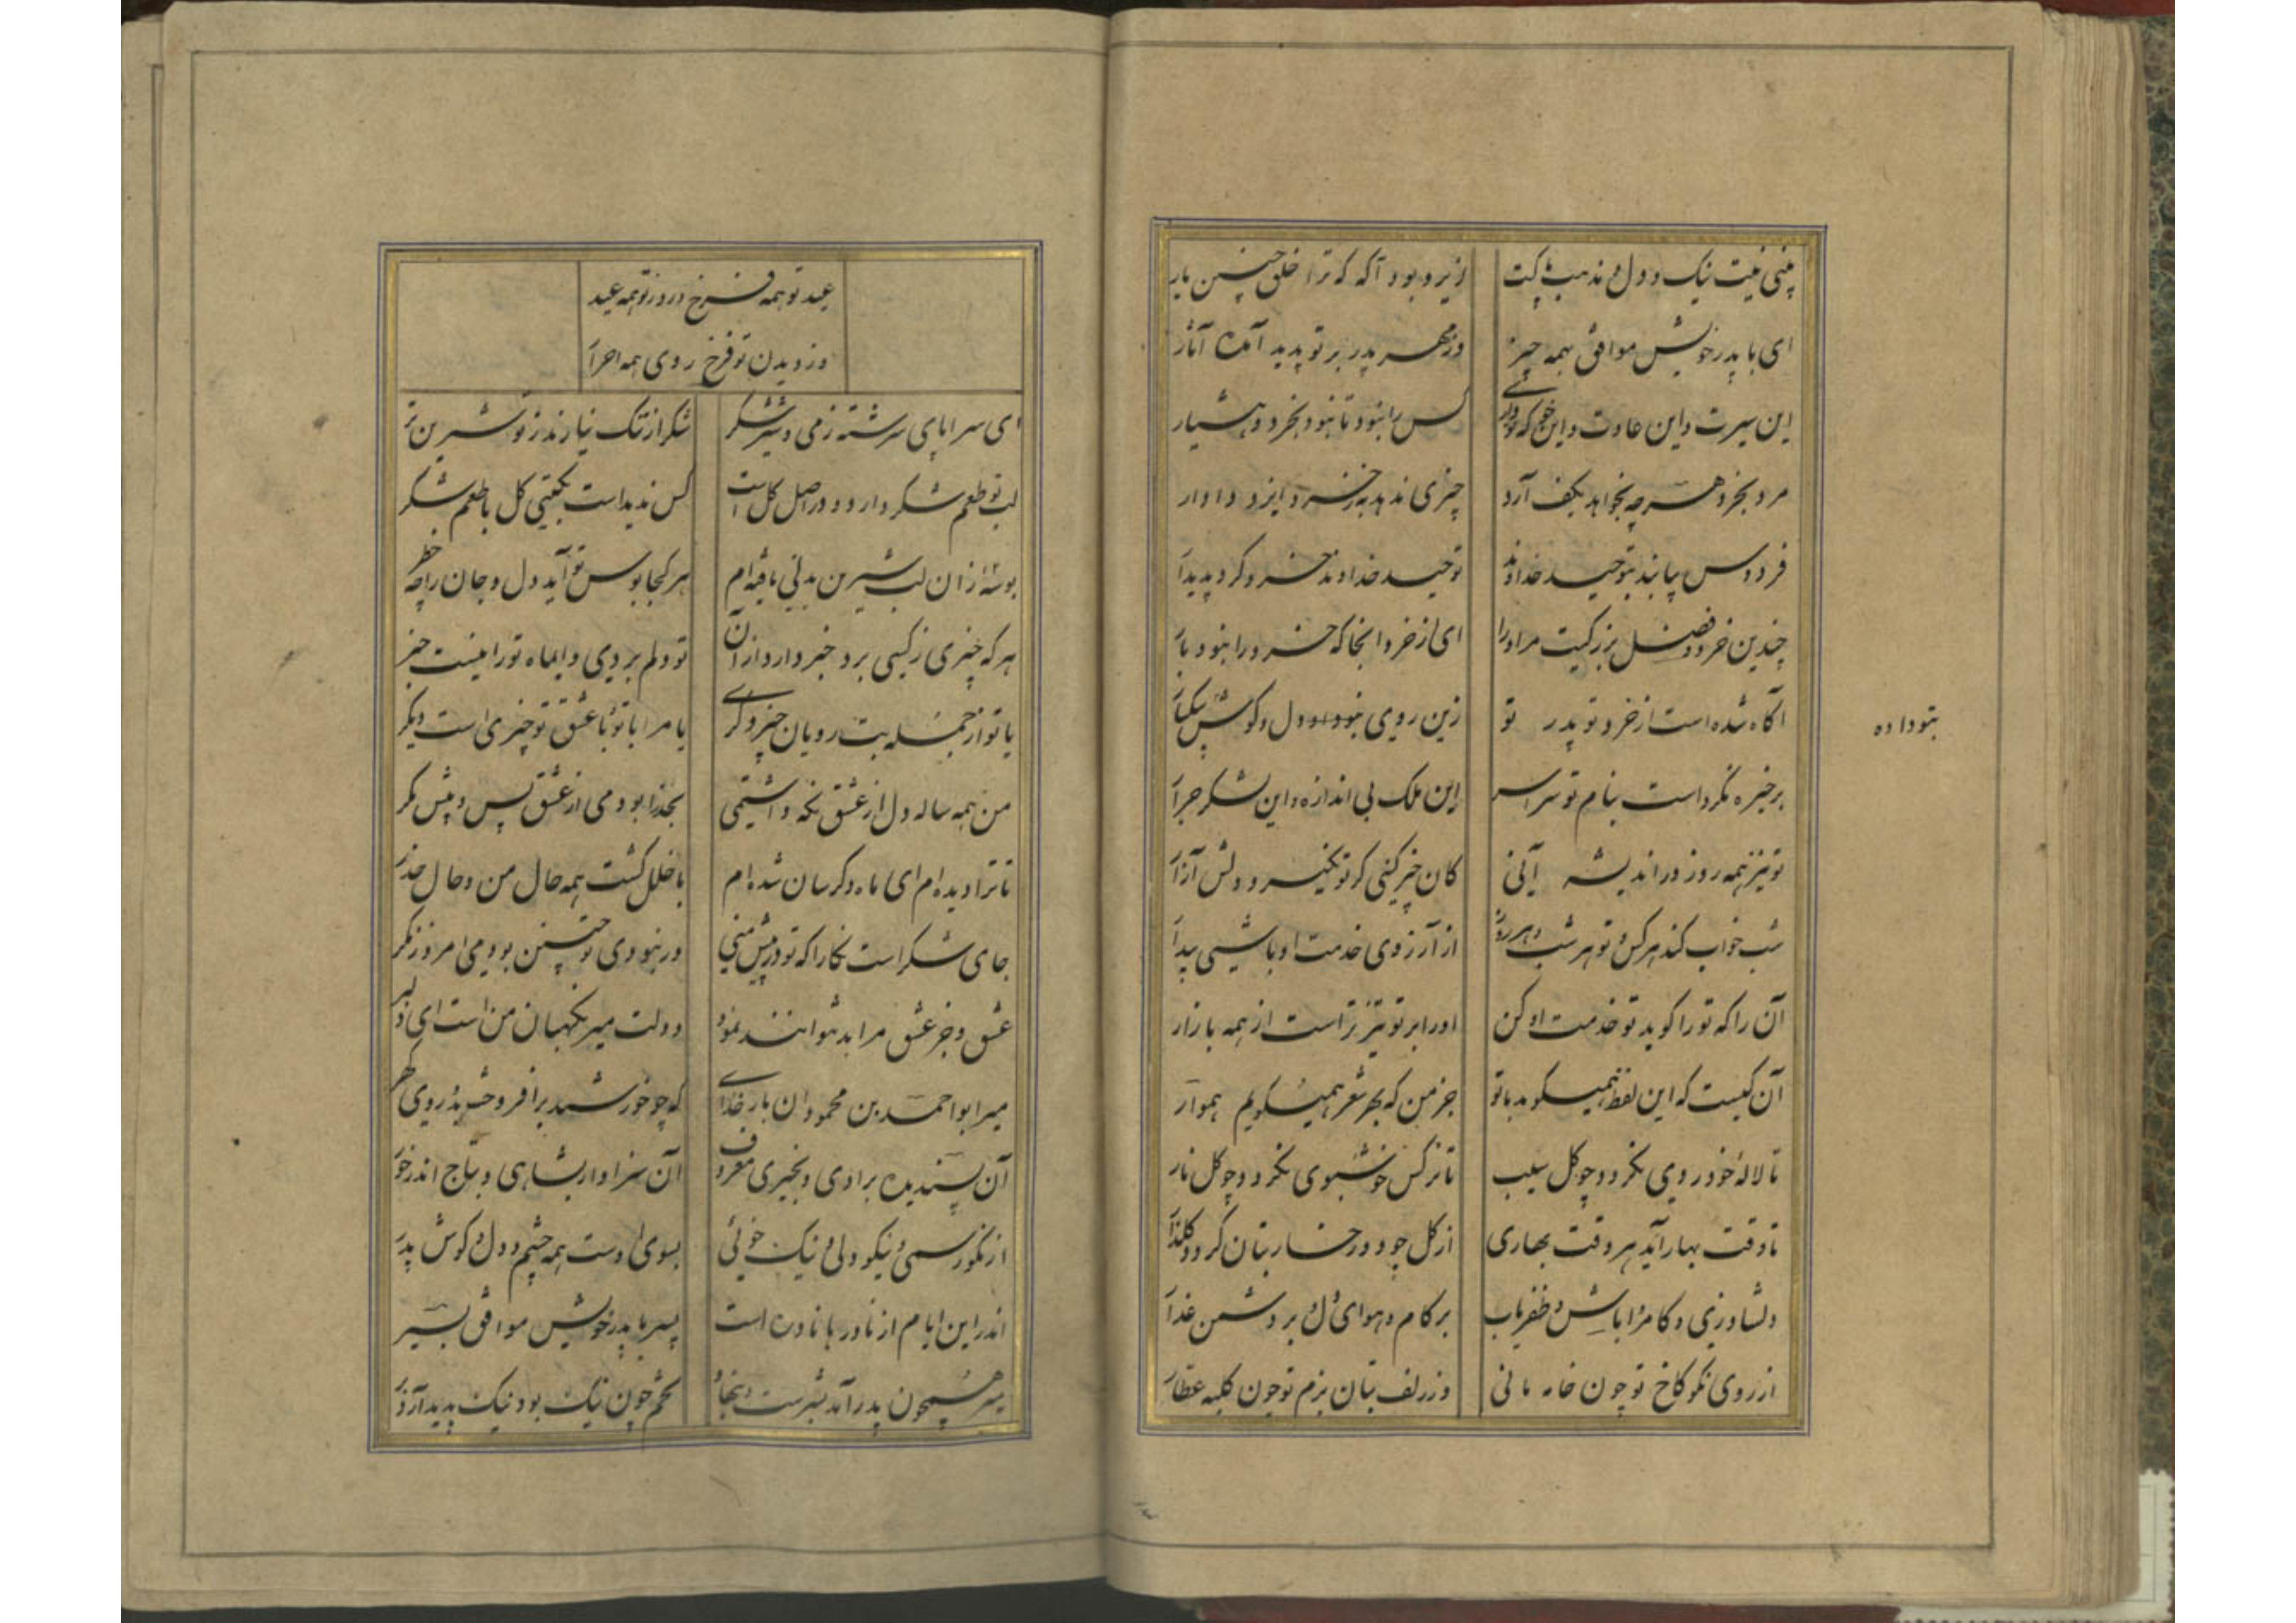 بینی نیت نیک و دل و مذهب پاکت
ایزد بود آگه که ترا خلق چنین یار
ای با پدر خویش موافق بهمه چیز
وز مهر پدر بر تو پدید آمده آثار
این سیرت و این عادت و این خو که تو داری
کس را نبود تا نبود بخرد و هشیار
مرد بخرد هر چه بخواهد بکف آرد
چیزی ندهد به ز خرد ایزد دادار
فردوس بیابند بتوحید خداوند
توحید خداوند خرد کرد پدیدار
چندین خرد و فضل بزرگیت مر او را
ای از خرد انجا که خرد را نبود بار
آگاه شده است از خرد تو پدر تو
زین روی بتو داده دل و گوش بیکبار
بتو داده
بر خیره نکرد است بنام تو سراسر
این ملک بی اندازه و این لشکر جرار
تو نیز همه روز در اندیشه آنی
کان خیر کنی کز تو نگیرد دلش آزار
شب خواب کند هر کس و تو هر شب و هر روز
از آرزوی خدمت او باشی بیدار
آن را که تو را گوید تو خدمت او کن
او را بر تو تیز تر است از همه بازار
آن کیست که این لفظ همیگوید با تو
جز من که بهر شعر همیگویم هموار
تا لاله خود روی نگردد چو گل سیب
تا نرگس خوشبوی نگردد چو گل نار
تا وقت بهار آید هر وقت بهاری
از گل چو دو رخسار بتان گردد گلزار
دلشاد زی و کامروا باش و ظفریاب
بر کام و هوای دل و بر دشمن غدار
از روی نکو کاخ تو چون خانه مانی
وز زلف بتان بزم تو چون کلبه عطار
عید تو همه فرخ و روز تو همه عید
وز دیدن تو فرخ روی همه احرار
ای سراپای سرشته ز می و شیر و شکر
شکر از تنگ نیارند ز تو شیرین تر
لب تو طعم شکر دارد و در اصل گل است
کس ندیداست بگیتی گل با طعم شکر
بوسه از ان لب شیرین بدلی یافته ام
هر کجا بوس تو آید دل و جان را چه خطر
هر که چیزی ز کسی برد خبر دارد از آن
تو دلم بردی و ایماه تو را نیست خبر
یا تو از جمله بت رویان چیز دگری
یا مرا با تو و با عشق تو چیزی است دیگر
من همه ساله دل از عشق نگه داشتمی
بحذر بودمی از عشق پس و پیش مگر
تا ترا دیده ام ای ماه دگر سان شده ام
با خلل گشت همه حال من و حال حذر
جای شکر است نگارا که تو در پیش منی
ور نبودی تو چنین بودمی امروز مگر
عشق و جز عشق مرا بد نتوانند نمود
دولت میر نگهبان من است ای دلبر
میر ابو احمد بن محمود ان بار خدای
که چو خورشید بر افروخت بدو روی گهر
آن پسندیده برادی و بخیری معروف
آن سزاوار بشاهی و بتاج اندر خور
از نکو رسمی و نیکو دلی و نیک خوئی
بسوی اوست همه چشم و دل و گوش پدر
اندر این ایام از نادرها نادره است
پسر با پدر خویش موافق بسیر
میر همچون پدر آمد بسرشت و بنهاد
تخم چون نیک بود نیک پدید آرد بر